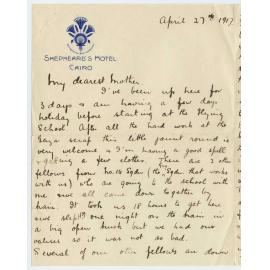 April 27th 1917
SHEPHEARD'S HOTEL
CAIRO
My dearest Mother
I've been up here for
3 days & am having a few days
holiday before starting at the Flying
School. After all the hard work at the
Gaza scrap this little jaunt round is
very welcome & I'm having a good spell
& getting a few clothes. There are 2 other
fellows from No. 14 Sqdn (the Sqdn that works
with us) who are going to the school with
me & we all came down together by
train. It took us 18 hours to get here
& we slept one night on the train in
a big open truck but we had our
valises so it was not so bad.
Several of our other fellows are down